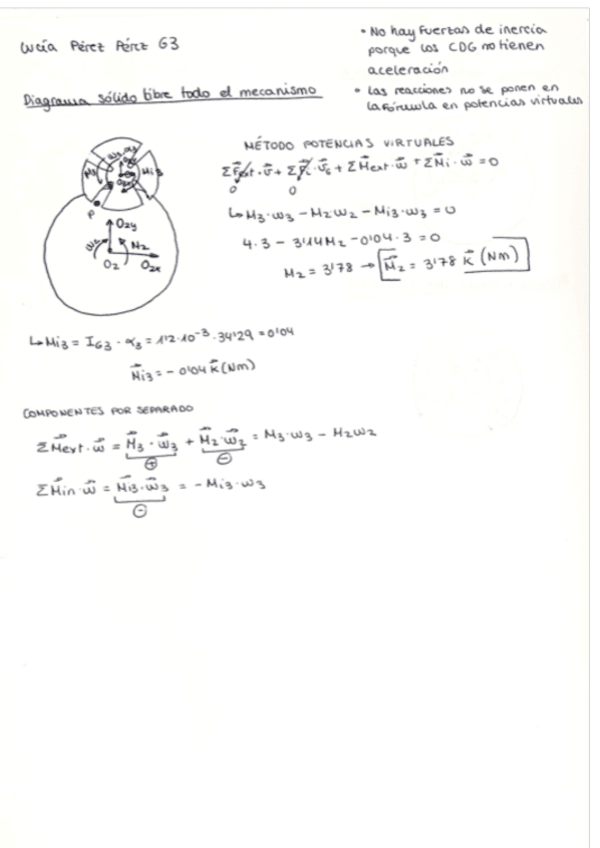 Lucía Pérez Pérez G3
• No hay fuerzas de inercia
porque los CDG no tienen
aceleración
• Las reacciones no se ponen en
la fórmula en potencias virtuales
Diagrama sólido libre todo el mecanismo
MÉTODO POTENCIAS VIRTUALES
ΣF⃗ext·v⃗ + ΣF⃗i·v⃗G + ΣM⃗ext·ω⃗ + ΣM⃗i·ω⃗ = 0
0 0
↳ M3·ω3 - M2ω2 - Mi3·ω3 = 0
4·3 - 3'14M2 - 0'04·3 = 0
M2 = 3'78 → M⃗2 = 3'78 k⃗ (Nm)
M3 ω3 Mi3
P
O2y
ω2 M2
O2 O2x
↳ Mi3 = IG3·α3 = 1'2·10⁻³·34'29 = 0'04
M⃗i3 = -0'04 k⃗ (Nm)
COMPONENTES POR SEPARADO
ΣM⃗ext·ω⃗ = M⃗3·ω⃗3 + M⃗2·ω⃗2 = M3·ω3 - M2ω2
⊕ ⊖
ΣM⃗in·ω⃗ = M⃗i3·ω⃗3 = -Mi3·ω3
⊖